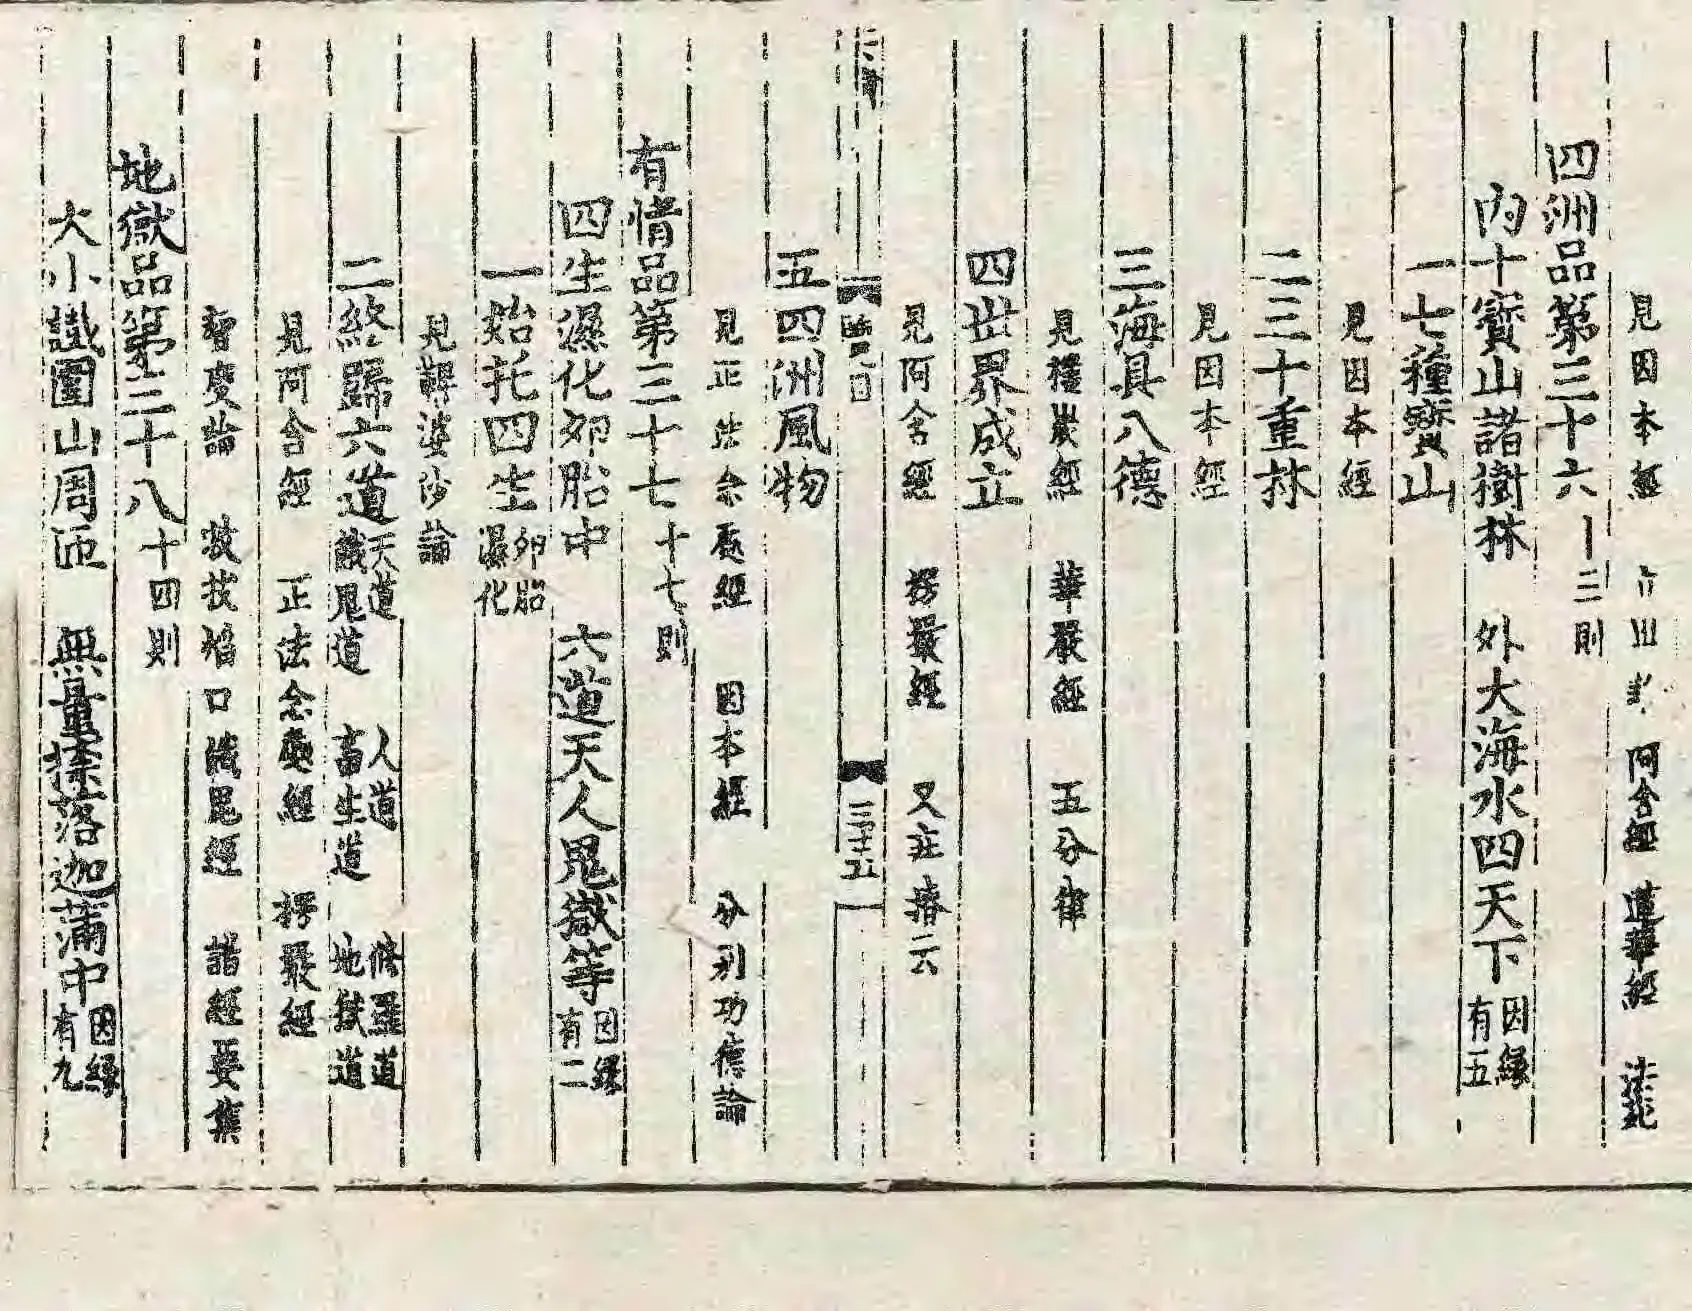 見因本經 阿含經 蓮華經 法苑
四洲品第三十六 一二則
內十寶山諸樹林 外大海水四天下 因緣有五
一七種寶山
見因本經
二三十重林
見因本經
三海具八德
見樓炭經 華嚴經 五分律
四世界成立
見阿含經 楞嚴經 又在搘六
三十五
五四洲風物
見正法念處經 因本經 分別功德論
有情品第三十七 十七則
四生濕化卵胎中 六道天人鬼獄等 因緣有二
一始托四生 卵胎濕化
見鞞婆沙論
二終歸六道 天道 人道 修羅道 餓鬼道 畜生道 地獄道
見阿含經 正法念處經 楞嚴經
智度論 救拔焰口餓鬼經 諸經要集
地獄品第三十八 十四則
大小鐵圍山周匝 無量捺落迦滿中 因緣有九